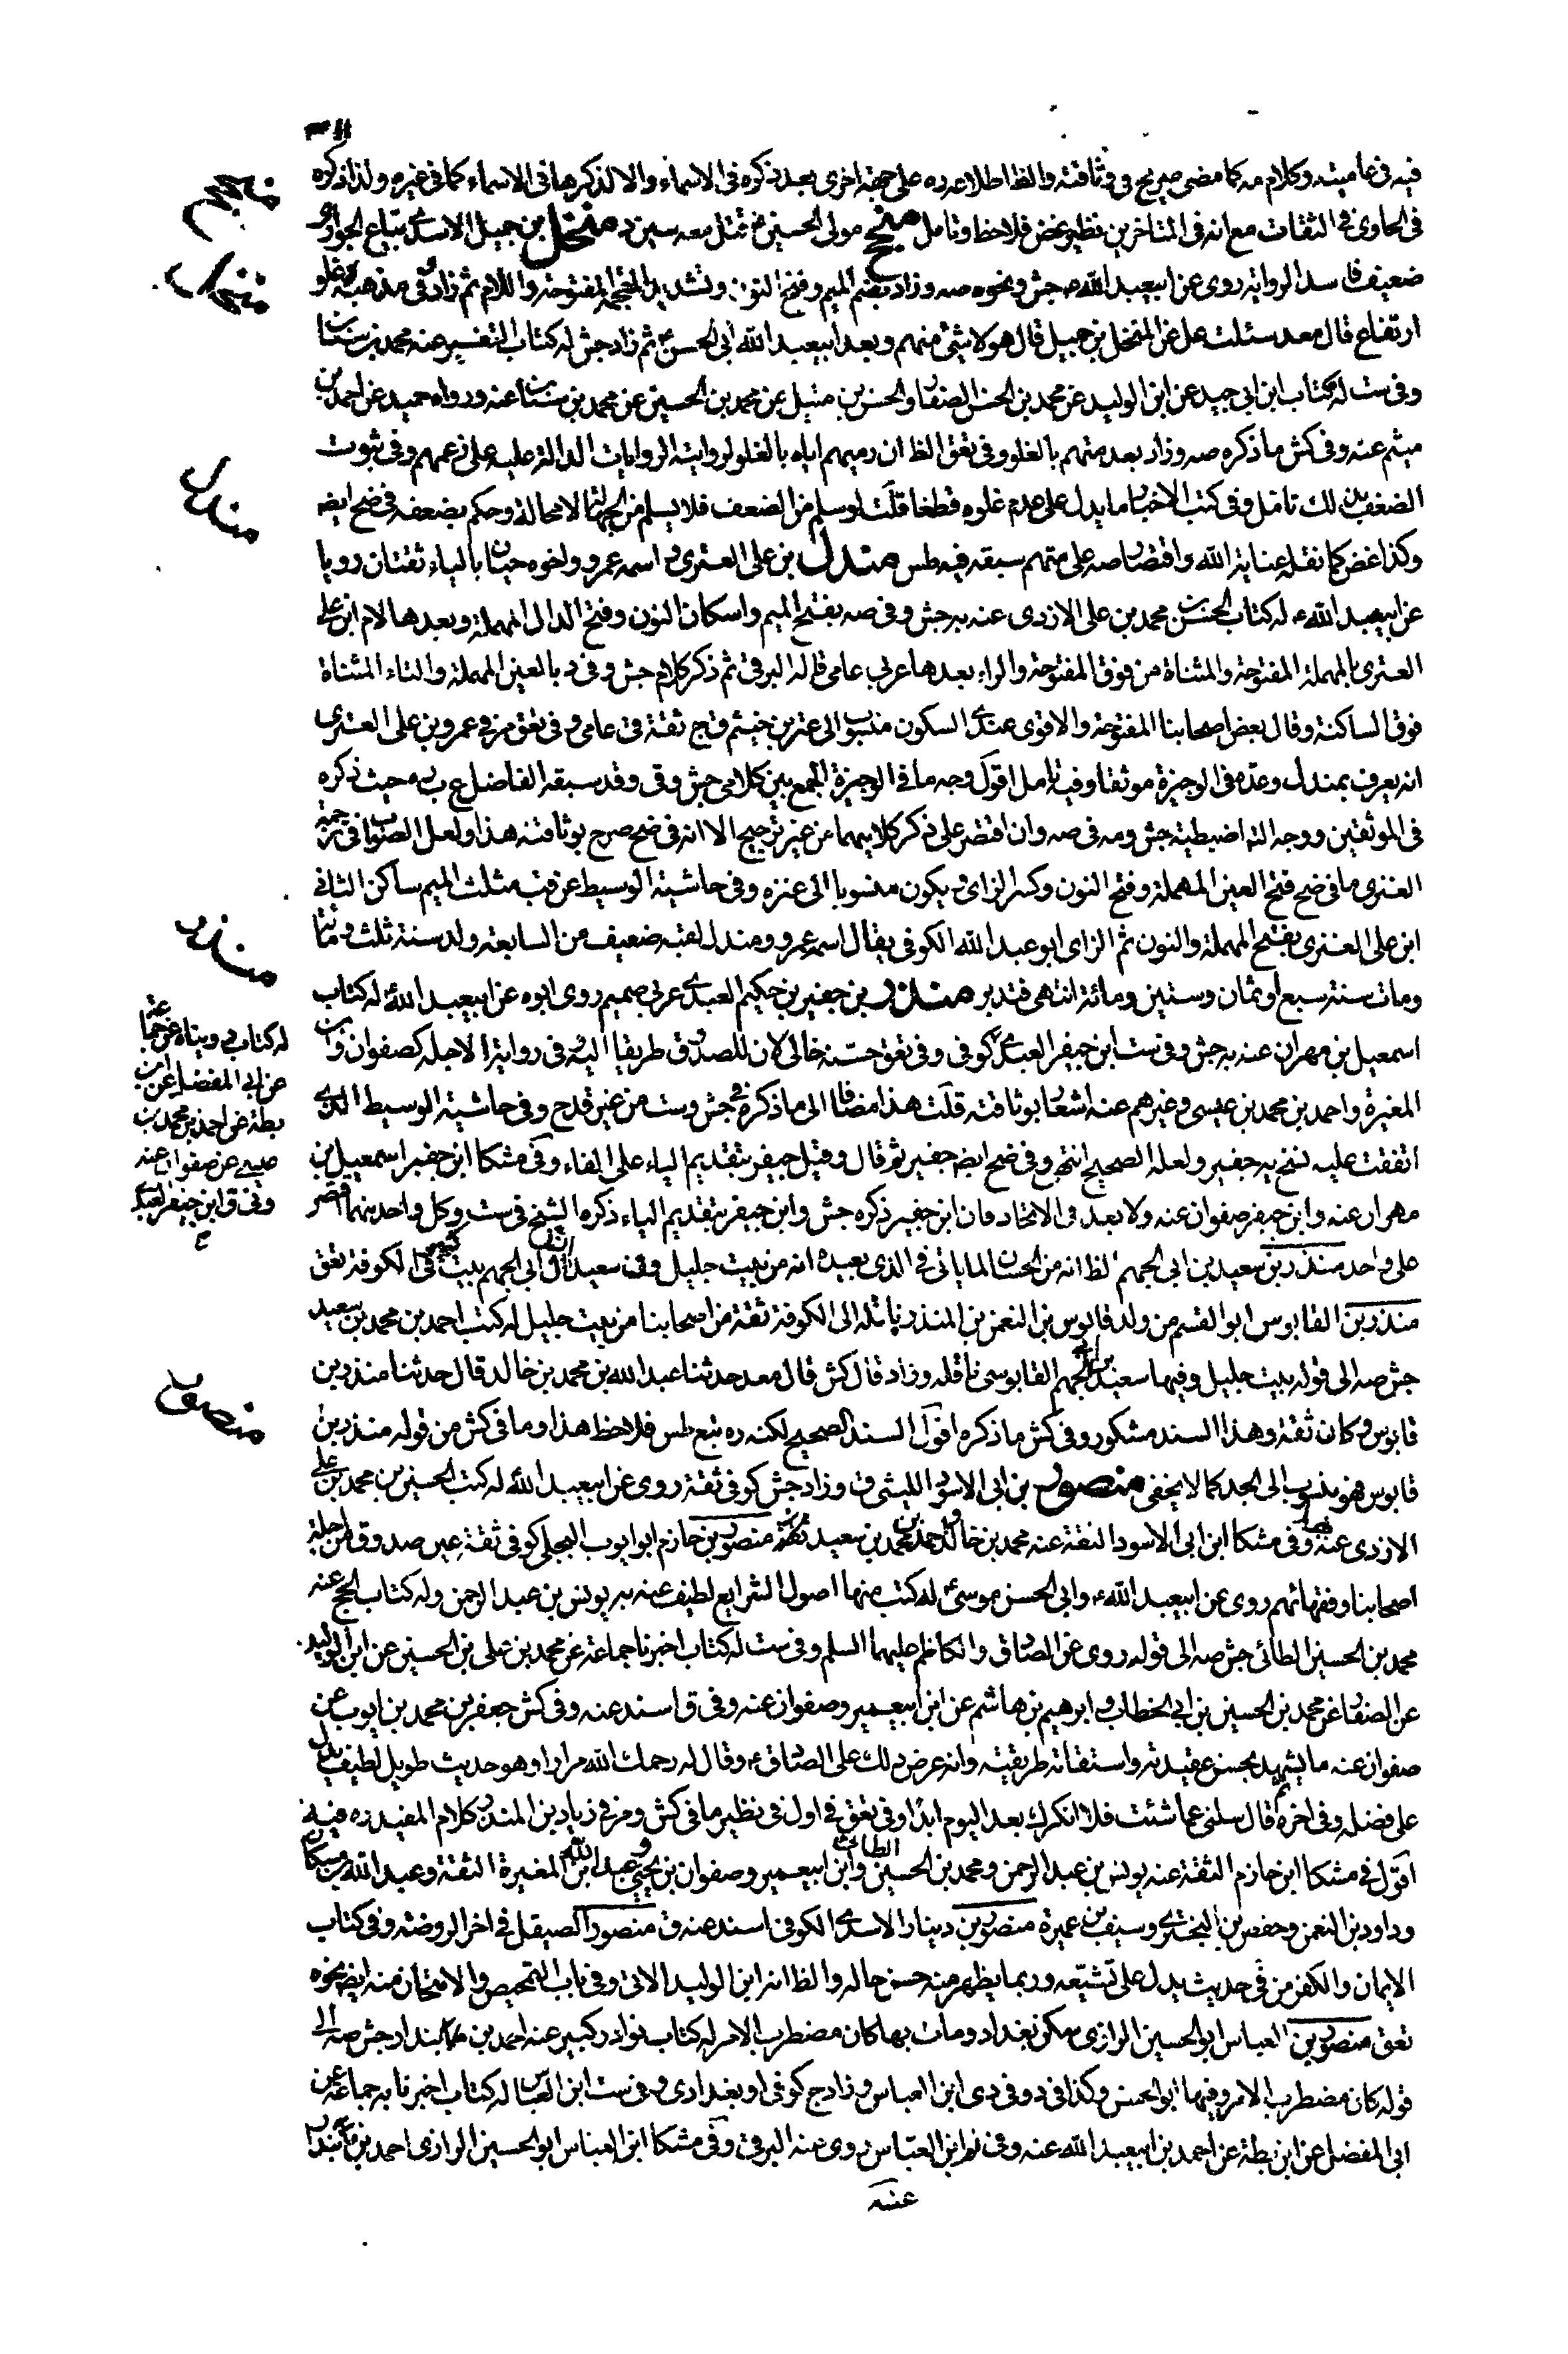 ٣١١
فيه فى عاميته وكلام مه كما مضى صريح فى وثاقته والظ اطلاعه ره على جهة اخرى بعد ذكره فى الاسماء والا لذكرها فى الاسماء كما فى غيره ولذا ذكره
فى الحاوى فى الثقات مع انه فى المتاخرين نظير غض فلاحظ وتامل منجح مولى الحسين ع قتل معه سين د منخل بن جميل الاسدى بياع الجوارى
ضعيف فاسد الرواية روى عن ابيعبد الله ع جش ونحوه صه وزاد بضم الميم وفتح النون وتشديد المعجمة المفتوحة واللام ثم زاد وفى مذهبه غلو
ارتفاع قال محمد سئلت على عن المنخل بن جميل قال هو لا شئ متهم وبعد ابيعبد الله ابى الحسن ع ثم زاد جش له كتاب التفسير عنه محمد بن سنان
وفى ست له كتاب ابن ابى جيد عن ابن الوليد عن محمد بن الحسن الصفار والحسن بن متيل عن محمد بن الحسين عن محمد بن سنان عنه ورواه حميد عن احمد بن
ميثم عنه وفى كش ما ذكره صه وزاد بعد متهم بالغلو وفى تعق الظ ان رميهم اياه بالغلو لروايته الروايات الدالة عليه على زعمهم وفى ثبوت
الضعف بذلك تامل وفى كتب الاخبار ما يدل على عدم غلوه قطعا قلت لو سلم من الضعف فلا يسلم من الجهالة لا محالة وحكم بضعفه فى ضح ايضا
وكذا غض كما نقله عناية الله واقتصار صه على متهم سبقه فيه طس مندل بن على العترى د اسمه عمرو واخوه حيان بالياء ثقتان رويا
عن ابيعبد الله ع له كتاب الحسن بن محمد بن على الازدى عنه به جش وفى صه بفتح الميم واسكان النون وفتح الدال المهملة وبعدها لام ابن على
العترى بالمهملة المفتوحة والمثناة من فوق المفتوحة والراء بعدها عربى عامى قاله البرقى ثم ذكر كلام جش وفى د بالعين المهملة والتاء المثناة
فوق الساكنة وقال بعض اصحابنا المفتوحة والاقوى عندى السكون منسوب الى عتر بن خيثم ق ج ثقة قى عامى وفى تعق مر فى عمرو بن على العترى
انه يعرف بمندل وعده فى الوجيزة موثقا وفيه تامل اقول وجه ما فى الوجيزة الجمع بين كلامى جش وقى وقد سبقه الفاضل ع ب حيث ذكره
فى الموثقين ووجه التامل اضبطية جش ومه فى صه وان اقتصر على ذكر كلاميهما من غير ترجيح الا انه فى ضح صرح بوثاقته هذا ولعل الصواب فى ترجمة
العنزى ما فى ضح فتح العين المهملة وفتح النون وكسر الزاى ويكون منسوبا الى عنزه وفى حاشية الوسيط عن قب مثلث الميم ساكن الثانى
ابن على العنزى بفتح المهملة والنون ثم الزاى ابو عبد الله الكوفى يقال اسمه عمرو ومندل لقبه ضعيف من السابعة ولد سنة ثلث ومائة
ومات سنة سبع او ثمان وستين ومائة انتهى فتدبر منذر بن جفير بن حكيم العبدى عربى صميم روى ابوه عن ابيعبد الله ع له كتاب
اسمعيل بن مهران عنه به جش وفى ست ابن جيفر العبدى كوفى وفى تعق حسنه خالى لان للصدوق طريقا اليه وفى رواية الاجلة كصفوان وابن
المغيرة واحمد بن محمد بن عيسى وغيرهم عنه اشعار بوثاقته قلت هذا مضافا الى ما ذكره فى جش وست من غير قدح وفى حاشية الوسيط الذى
اتفقت عليه نسخ يه جفير ولعله الصحيح انتهى وفى ضح ايضا جفير ثم قال وقيل جيفر بتقديم الياء على الفاء وفى مشكا ابن جفير اسمعيل بن
مهران عنه وابن جيفر صفوان عنه ولا بعد فى الاتحاد فان ابن جفير ذكره جش وابن جيفر بتقديم الياء ذكره الشيخ فى ست وكل واحد منهما اقتصر
على واحد منذر بن سعيد بن ابى الجهم الظ انه من الحسان لما ياتى فى الذى بعيده انه من بيت جليل وفى سعيد ان آل ابى الجهم بيت كبير فى الكوفة تعق
منذر بن القابوس ابو القسم من ولد قابوس بن النعمن بن المنذر ناقله الى الكوفة ثقة من اصحابنا من بيت جليل له كتب احمد بن محمد بن سعيد
جش صه الى قوله بيت جليل وفيها سعيد بن ابى الجهم القابوسى ناقله وزاد قال كش قال محمد حدثنا عبد الله بن محمد بن خالد قال حدثنا منذر بن
قابوس وكان ثقة وهذا السند مشكور وفى كش ما ذكره اقول السند الصحيح لكنه ره تبع طس فلاحظ هذا وما فى كش من قوله منذر بن
قابوس فهو منسوب الى الجد كما لا يخفى منصور بن ابى الاسود الليثى ق وزاد جش كوفى ثقة روى عن ابيعبد الله ع له كتب الحسين بن محمد بن على
الازدى عنه بها وفى مشكا ابن ابى الاسود الثقة عنه محمد بن خالد واحمد بن محمد بن سعيد منصور بن حازم ابو ايوب البجلى كوفى ثقة عين صدوق من جلة
اصحابنا وفقهائهم روى عن ابيعبد الله ع وابى الحسن موسى ع له كتب منها اصول الشرايع لطيف عنه به يونس بن عبد الرحمن وله كتاب الحج عنه
محمد بن الحسين الطائى جش صه الى قوله روى عن الصادق والكاظم عليهما السلم وفى ست له كتاب اخبرنا جماعة عن محمد بن على بن الحسين عن ابن الوليد
عن الصفار عن محمد بن الحسين بن ابى الخطاب وابرهيم بن هاشم عن ابن ابيعمير وصفوان عنه وفى ق اسند عنه وفى كش جعفر بن محمد بن ايوب عن
صفوان عنه ما يشهد بحسن عقيدته واستقامة طريقته وانه عرض ذلك على الصادق ع وقال له رحمك الله مرارا وهو حديث طويل لطيف يدل
على فضله وفى اخره قال سلنى عما شئت فلا انكرك بعد اليوم ابدا وفى تعق فى اول نظير ما فى كش ومر فى زياد بن المنذر كلام المفيد ره فيه
اقول فى مشكا ابن حازم الثقة عنه يونس بن عبد الرحمن ومحمد بن الحسين الطائى وابن ابيعمير وصفوان بن يحيى وعبد الله بن المغيرة الثقة وعبد الله بن مسكان
وداود بن النعمن وحفص بن البخترى وسيف بن عميرة منصور بن دينار الاسدى الكوفى اسند عنه ق منصور الصيقل فى اخر الروضة وفى كتاب
الايمان والكفر من فى حديث يدل على تشيعه وربما يظهر منه حسن حاله والظ انه ابن الوليد الاتى وفى باب التمحيص والامتحان منه ايضا نحوه
تعق منصور بن العباس ابو الحسين الرازى سكن بغداد ومات بها كان مضطرب الامر له كتاب نوادر كبير عنه احمد بن مابنداد جش صه الى
قوله كان مضطرب الامر وفيها ابو الحسن وكذا فى د وفى دى ابن العباس وزاد ج كوفى او بغدادى وفى ست ابن العباس له كتاب اخبرنا به جماعة عن
ابى المفضل عن ابن بطة عن احمد بن ابيعبد الله عنه وفى لم ابن العباس روى عنه البرقى وفى مشكا ابن العباس ابو الحسين الرازى احمد بن مابنداد
عنه
منجح
منخل
مندل
منذر
له كتاب رويناه عن جماعة
عن ابى المفضل عن ابن
بطة عن احمد بن محمد بن
عيسى عن صفوان عنه
وفى ق ابن جيفر العبدى
ح
منصور